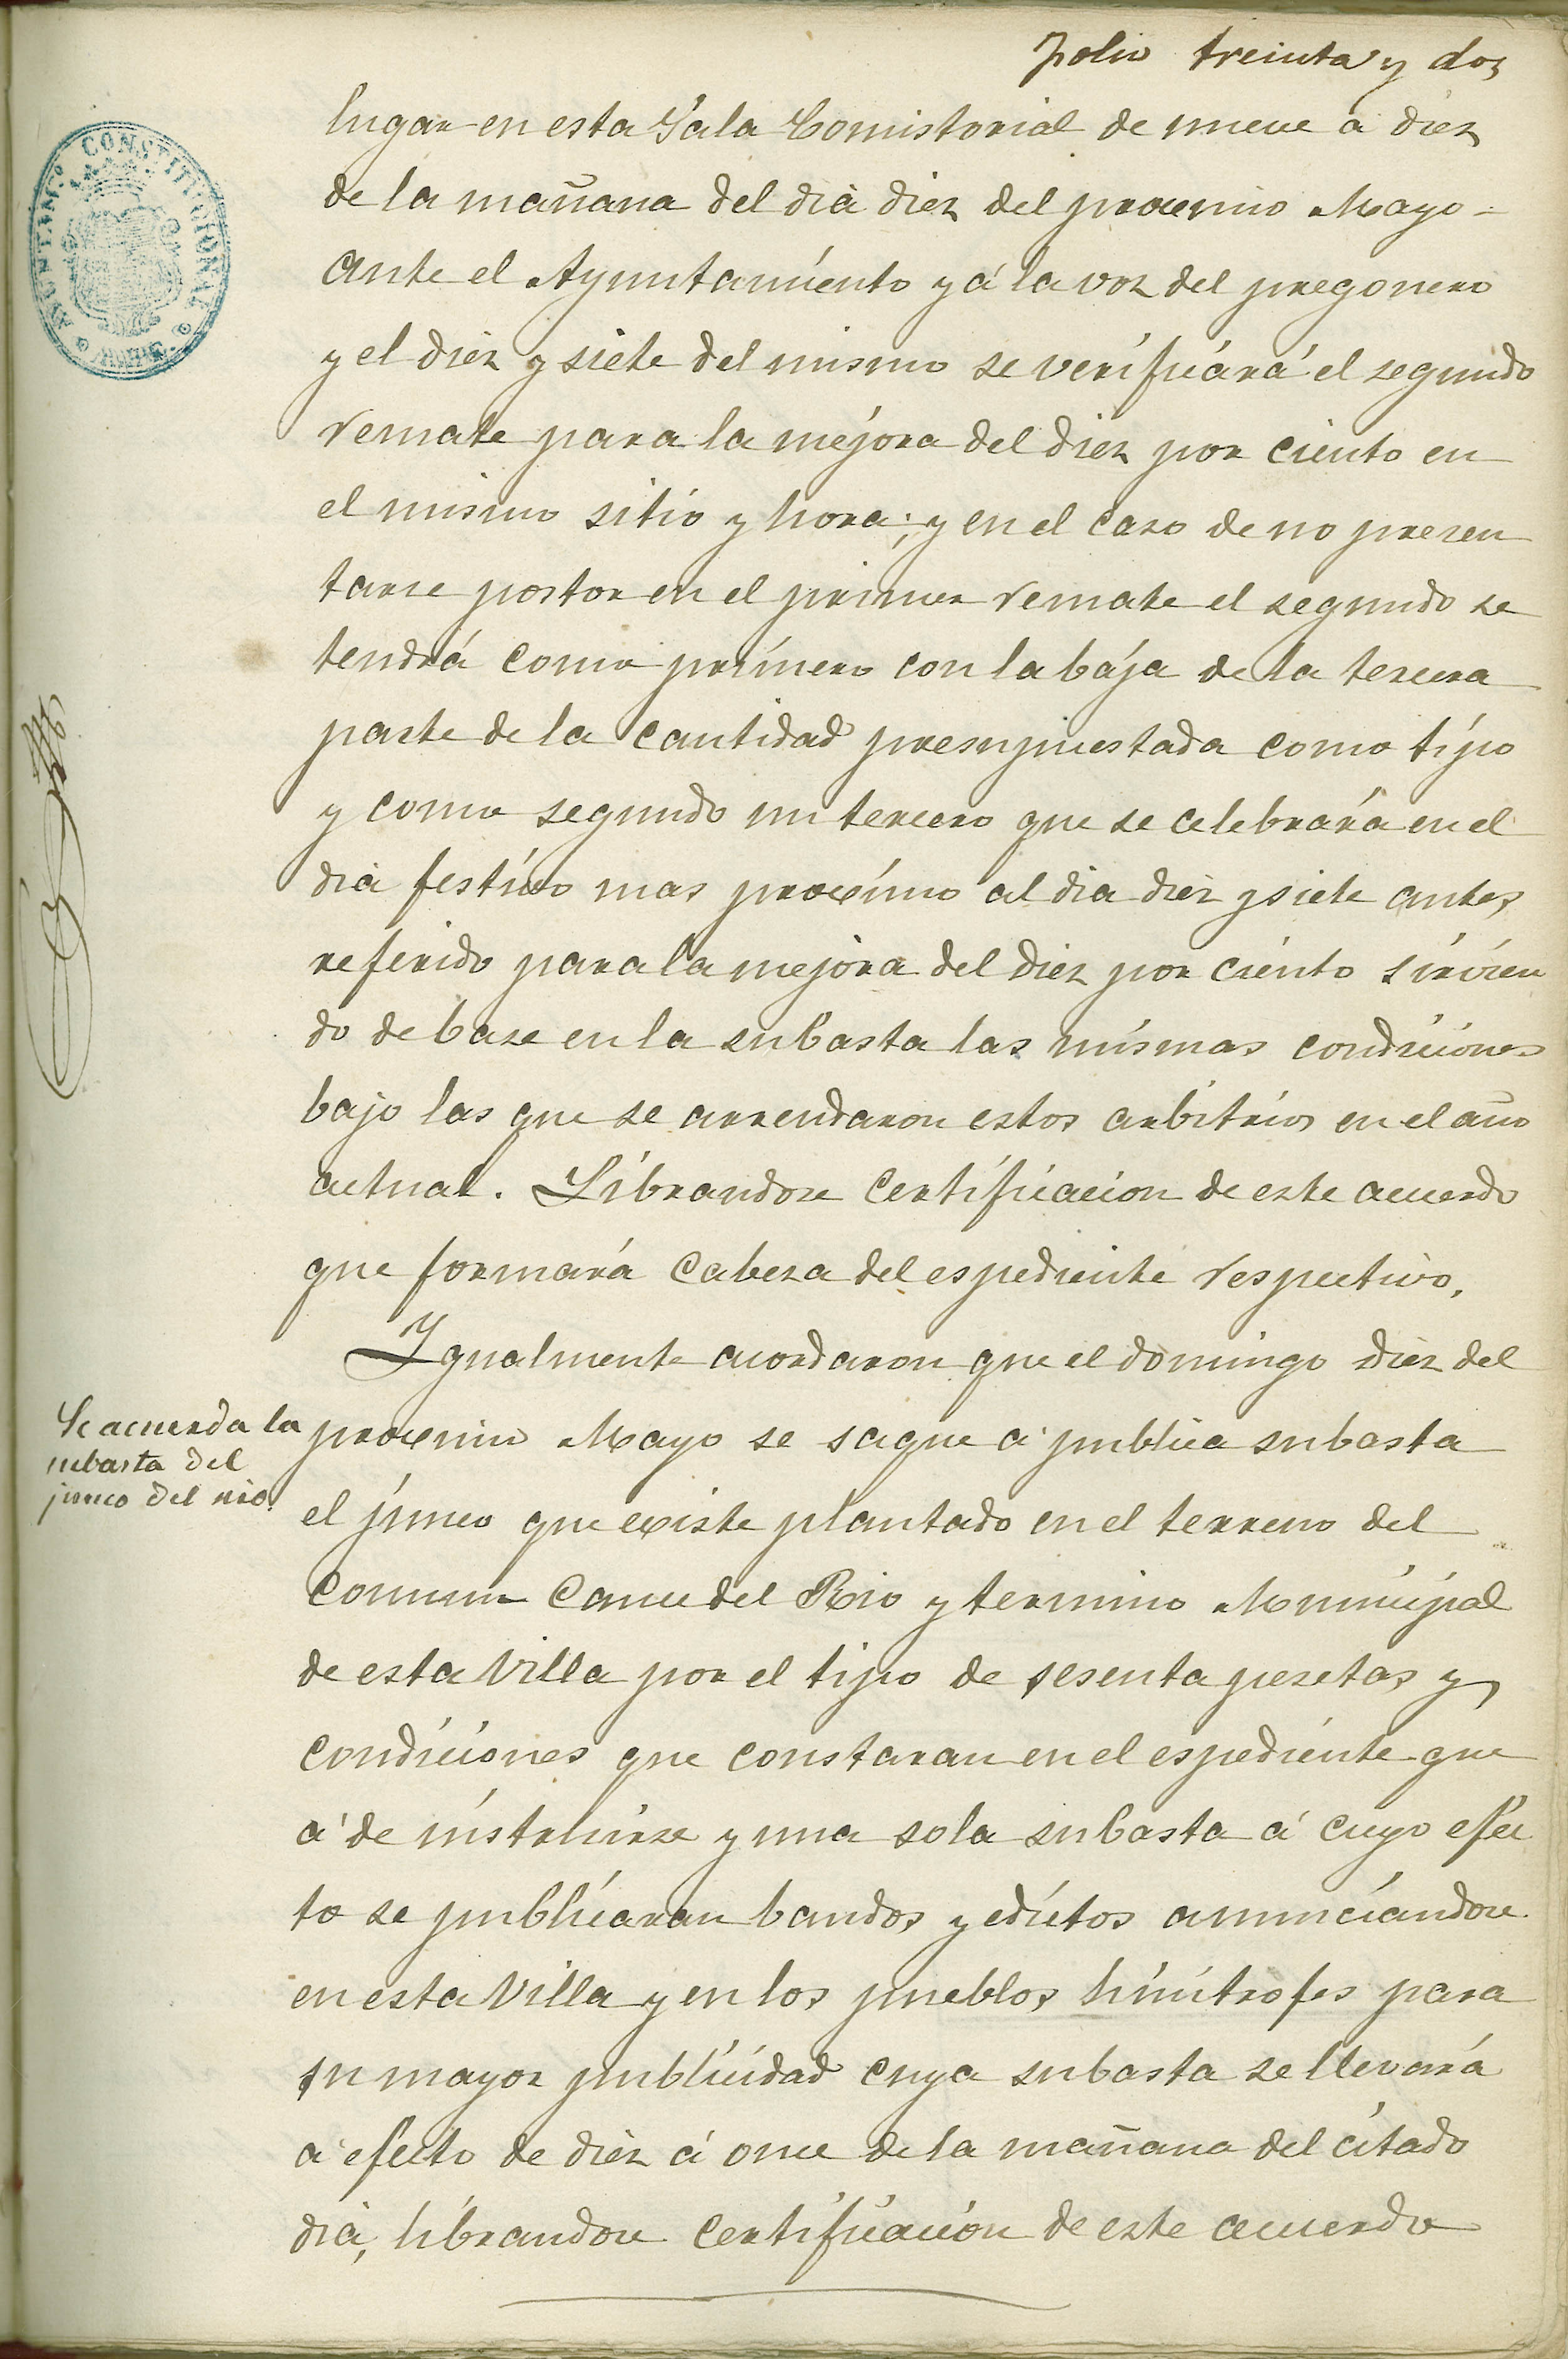 Folio treinta y dos
lugar en esta Sala Comistorial de nueve á diez
de la mañana del dia diez del procsimo Mayo =
ante el Ayuntamiento y á la voz del pregonero
y el diez y siete del mismo se verificará el segundo
remate para la mejora del diez por ciento en
el mismo sitio y hora; y en el caso de no presen
tarse postor en el primer remate el segundo se
tendrá como primero con la baja de la tercera
parte de la cantidad presupuestada como tipo
y como segundo un tercero que se celebrará en el
dia festivo mas procsimo al dia diez y siete antes
referido para la mejora del diez por ciento sirvien
do de base en la subasta las mismas condiciones
bajo las que se arrendaron estos arbitrios en el año
actual. Librandose certificacion de este acuerdo
que formará cabeza del espediente respectivo.
Igualmente acordaron que el domingo diez del
Se acuerda la
subasta del
junco del rio.
procsimo Mayo se saque á publica subasta
el junco que ecsiste plantado en el terreno del
comun Cauce del Rio y termino Municipal
de esta Villa por el tipo de sesenta pesetas y
condiciones que constaran en el espediente que
á de instruirse y una sola subasta á cuyo efec
to se publicaran bandos y edictos anunciandose
en esta Villa y en los pueblos limitrofes para
su mayor publicidad cuya subasta se llevará
a efecto de diez á once de la mañana del citado
dia, librandose certificacion de este acuerdo
AYUNTAM.º CONSTITUCIONAL